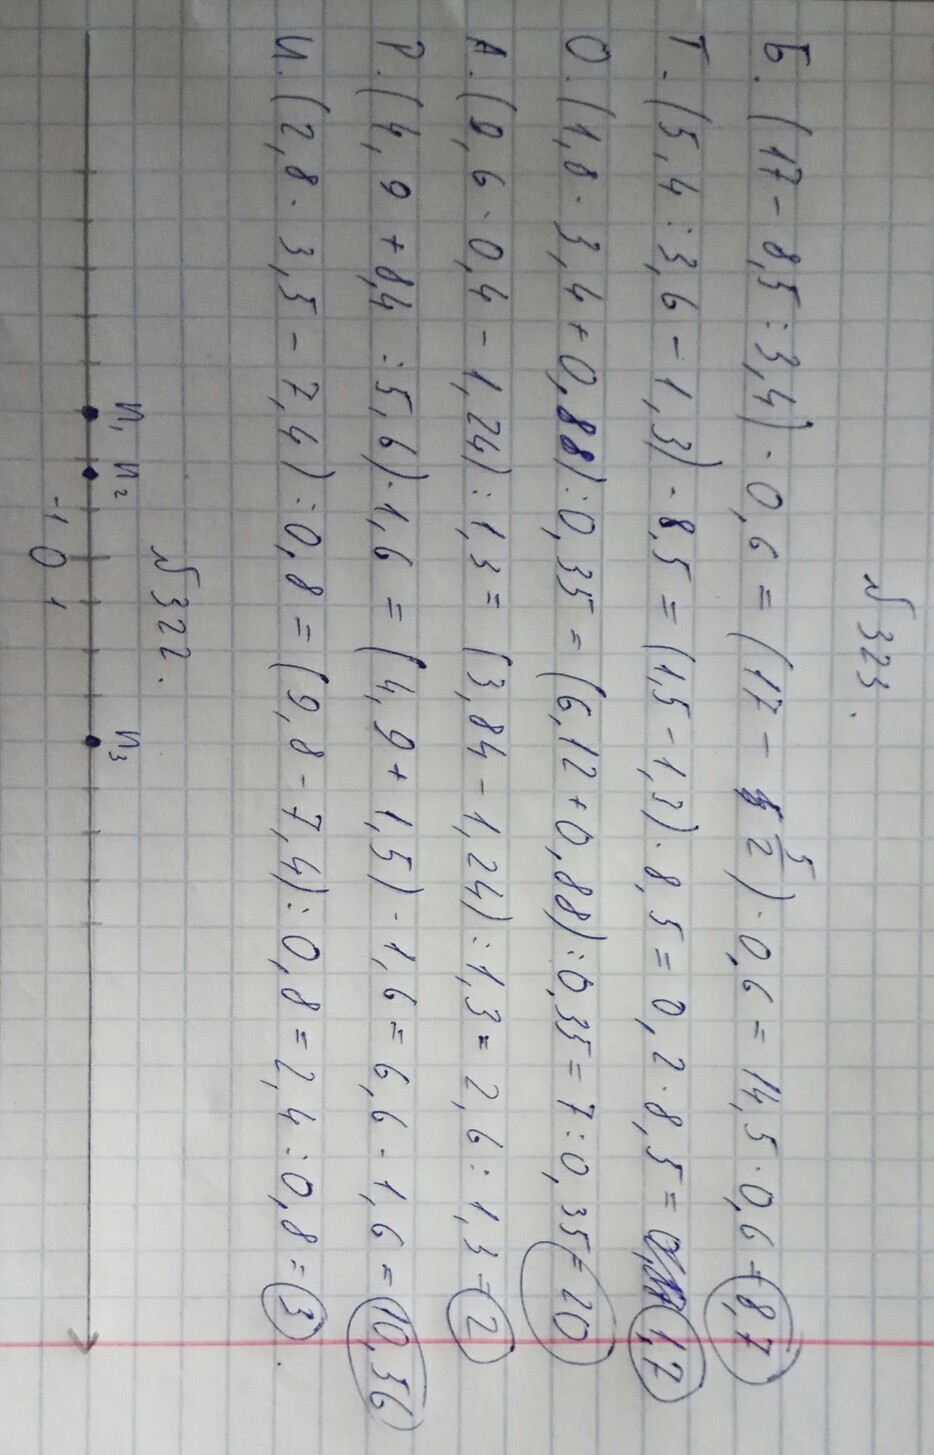 №323.
Б. (17 - 8,5 : 3,4) · 0,6 = (17 - 5/2) · 0,6 = 14,5 · 0,6 = 8,7
Т. (5,4 : 3,6 - 1,3) · 8,5 = (1,5 - 1,3) · 8,5 = 0,2 · 8,5 = 1,7
О. (1,8 · 3,4 + 0,88) : 0,35 = (6,12 + 0,88) : 0,35 = 7 : 0,35 = 20
А. (9,6 · 0,4 - 1,24) : 1,3 = (3,84 - 1,24) : 1,3 = 2,6 : 1,3 = 2
Р. (4,9 + 8,4 : 5,6) · 1,6 = (4,9 + 1,5) · 1,6 = 6,6 · 1,6 = 10,56
И. (2,8 · 3,5 - 7,4) : 0,8 = (9,8 - 7,4) : 0,8 = 2,4 : 0,8 = 3.
№322.
n₁ n₂ n₃
-1 0 1